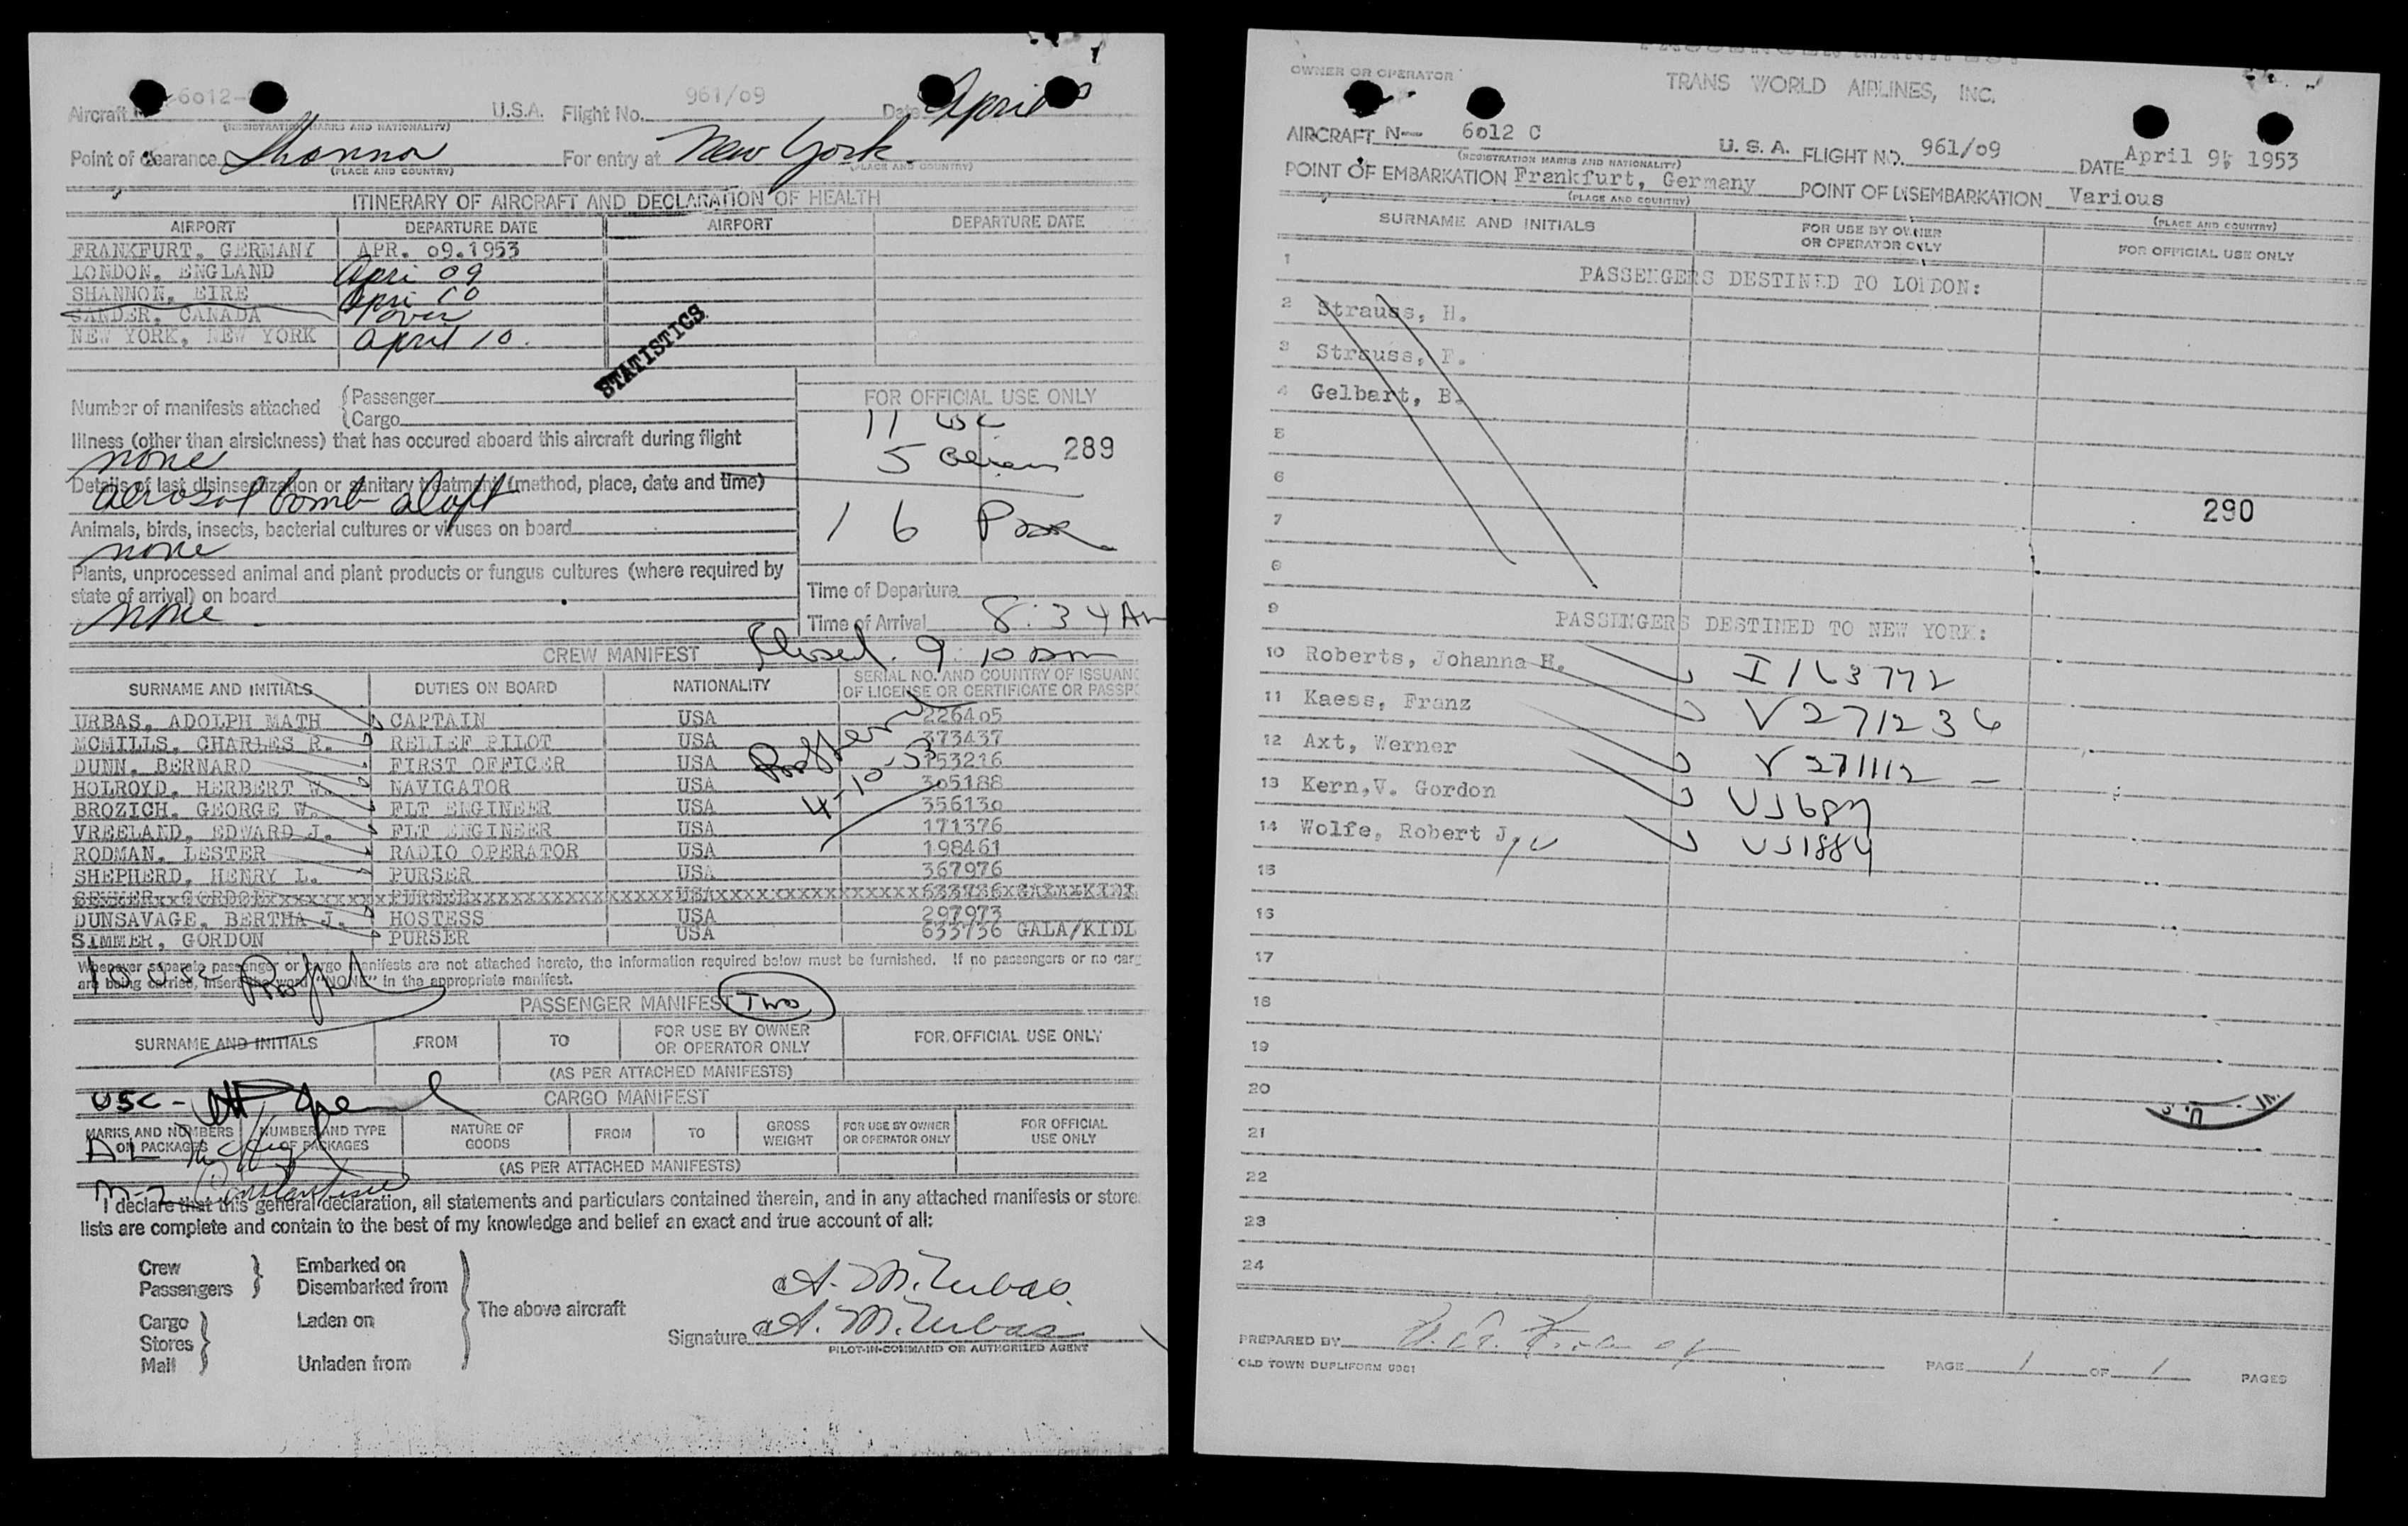 Aircraft 6012- U.S.A. Flight No. 961/09 Date April
(REGISTRATION MARKS AND NATIONALITY)
Point of clearance Shannon For entry at New York.
(PLACE AND COUNTRY) (PLACE AND COUNTRY)
ITINERARY OF AIRCRAFT AND DECLARATION OF HEALTH
AIRPORT DEPARTURE DATE AIRPORT DEPARTURE DATE
FRANKFURT, GERMANY APR. 09.1953
LONDON, ENGLAND Apri 09
SHANNON, EIRE Apri 10
GANDER, CANADA over
NEW YORK, NEW YORK April 10.
STATISTICS
Number of manifests attached {Passenger
{Cargo
FOR OFFICIAL USE ONLY
11 usc
5 aliens 289
16 Pax
Illness (other than airsickness) that has occured aboard this aircraft during flight
none
Details of last disinsectization or sanitary treatment (method, place, date and time)
aerosol bomb aloft
Animals, birds, insects, bacterial cultures or viruses on board
none
Plants, unprocessed animal and plant products or fungus cultures (where required by
state of arrival) on board
none
Time of Departure
Time of Arrival 8:34 AM
Closed. 9:10 am
CREW MANIFEST
SURNAME AND INITIALS DUTIES ON BOARD NATIONALITY SERIAL NO. AND COUNTRY OF ISSUANC
OF LICENSE OR CERTIFICATE OR PASSPO
URBAS, ADOLPH MATH CAPTAIN USA 226405
MCMILLS, CHARLES R. RELIEF PILOT USA 373437
DUNN, BERNARD FIRST OFFICER USA 153216
HOLROYD, HERBERT W. NAVIGATOR USA 305188
BROZICH, GEORGE W. FLT ENGINEER USA 356130
VREELAND, EDWARD J. FLT ENGINEER USA 171376
RODMAN, LESTER RADIO OPERATOR USA 198461
SHEPHERD, HENRY L. PURSER USA 367976
DUNSAVAGE, BERTHA J. HOSTESS USA 297973
SIMMER, GORDON PURSER USA 633736 GALA/KIDL
4-10-53
Whenever separate passenger or cargo manifests are not attached hereto, the information required below must be furnished. If no passengers or no carg
are being carried, insert the word "NONE" in the appropriate manifest.
10 USC
PASSENGER MANIFEST Two
SURNAME AND INITIALS FROM TO FOR USE BY OWNER
OR OPERATOR ONLY FOR OFFICIAL USE ONLY
(AS PER ATTACHED MANIFESTS)
USC -
CARGO MANIFEST
MARKS AND NUMBERS
ON PACKAGES NUMBER AND TYPE
OF PACKAGES NATURE OF
GOODS FROM TO GROSS
WEIGHT FOR USE BY OWNER
OR OPERATOR ONLY FOR OFFICIAL
USE ONLY
AL
(AS PER ATTACHED MANIFESTS)
I declare that this general declaration, all statements and particulars contained therein, and in any attached manifests or store
lists are complete and contain to the best of my knowledge and belief an exact and true account of all:
Crew
Passengers } Embarked on
Disembarked from
Cargo
Stores
Mail } Laden on
Unladen from
The above aircraft
A. M. Urbas
Signature A. M. Urbas
PILOT-IN-COMMAND OR AUTHORIZED AGENT
OWNER OR OPERATOR
TRANS WORLD AIRLINES, INC.
AIRCRAFT N— 6012 C U. S. A. FLIGHT NO. 961/09 DATE April 9, 1953
(REGISTRATION MARKS AND NATIONALITY)
POINT OF EMBARKATION Frankfurt, Germany POINT OF DISEMBARKATION Various
(PLACE AND COUNTRY) (PLACE AND COUNTRY)
SURNAME AND INITIALS FOR USE BY OWNER
OR OPERATOR ONLY FOR OFFICIAL USE ONLY
1 PASSENGERS DESTINED TO LONDON:
2 Strauss, H.
3 Strauss, F.
4 Gelbart, B.
5
6
7 290
8
9 PASSENGERS DESTINED TO NEW YORK:
10 Roberts, Johanna H. I 163772
11 Kaess, Franz V 271236
12 Axt, Werner V 271112 -
13 Kern,V. Gordon
14 Wolfe, Robert J.
15
16
17
18
19
20
21
22
23
24
PREPARED BY
OLD TOWN DUPLIFORM
PAGE 1 OF 1 PAGES